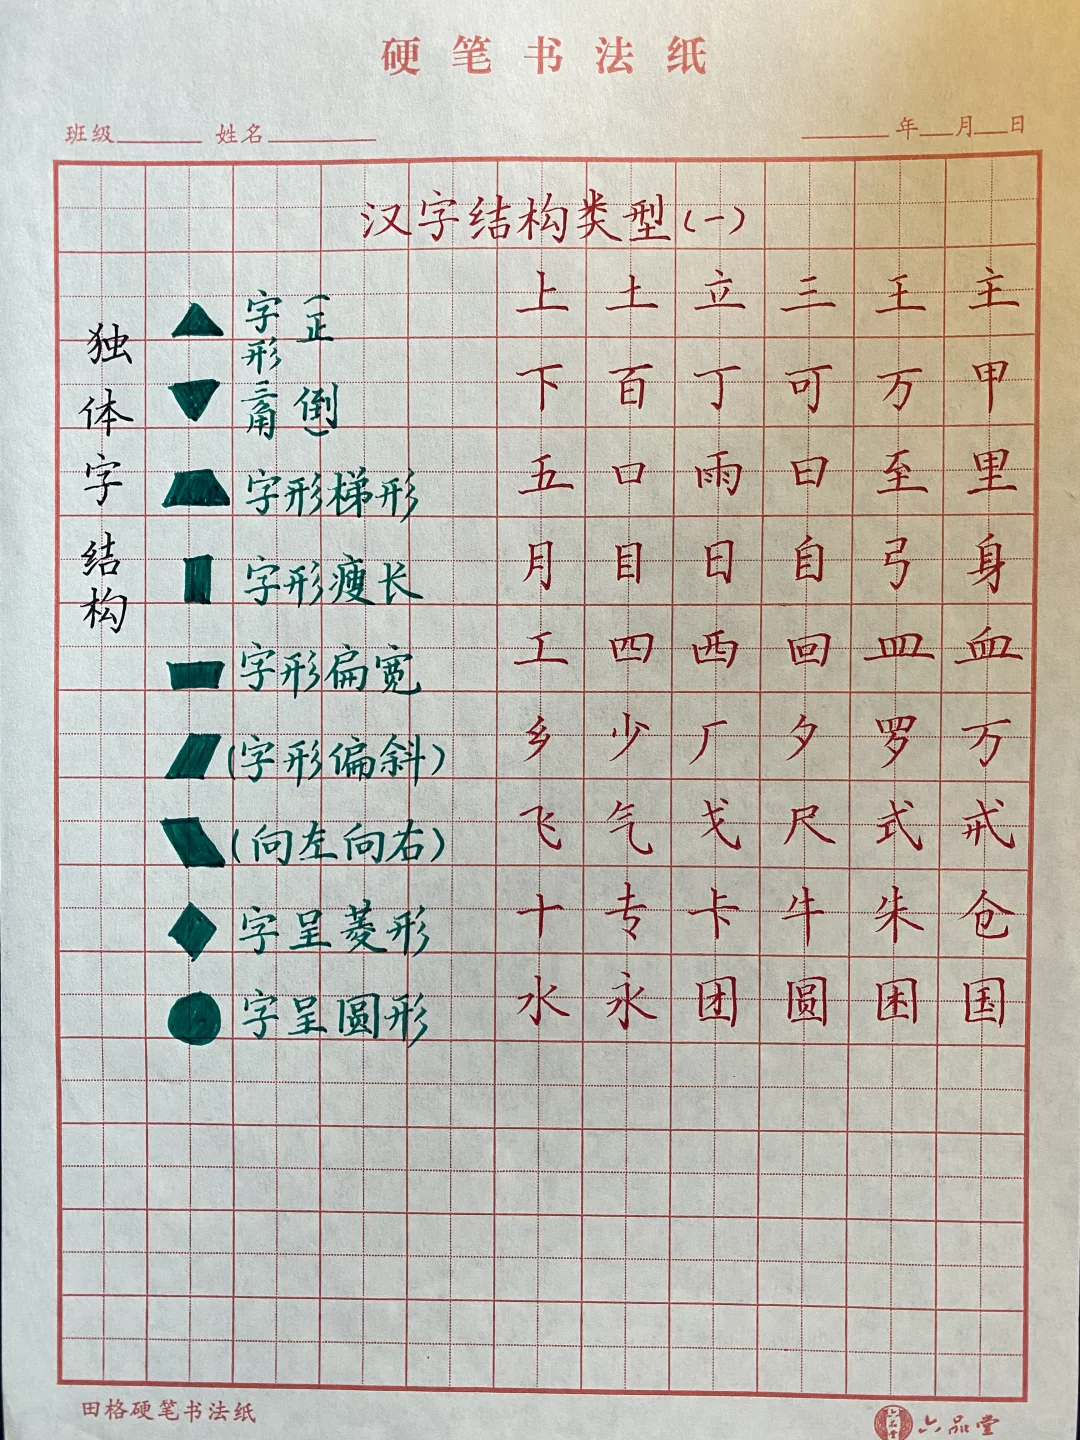 硬笔书法纸
班级 姓名 年 月 日
汉字结构类型(一)
独体字结构
字形三角(正倒)
上 土 立 三 王 主
下 百 丁 可 万 甲
字形梯形 五 口 雨 曰 至 里
字形瘦长 月 目 日 自 弓 身
字形扁宽 工 四 西 回 皿 血
(字形偏斜) 乡 少 厂 夕 罗 万
(向左向右) 飞 气 戈 尺 式 戒
字呈菱形 十 专 卡 牛 朱 仓
字呈圆形 水 永 团 圆 困 国
田格硬笔书法纸
六品堂 六品堂